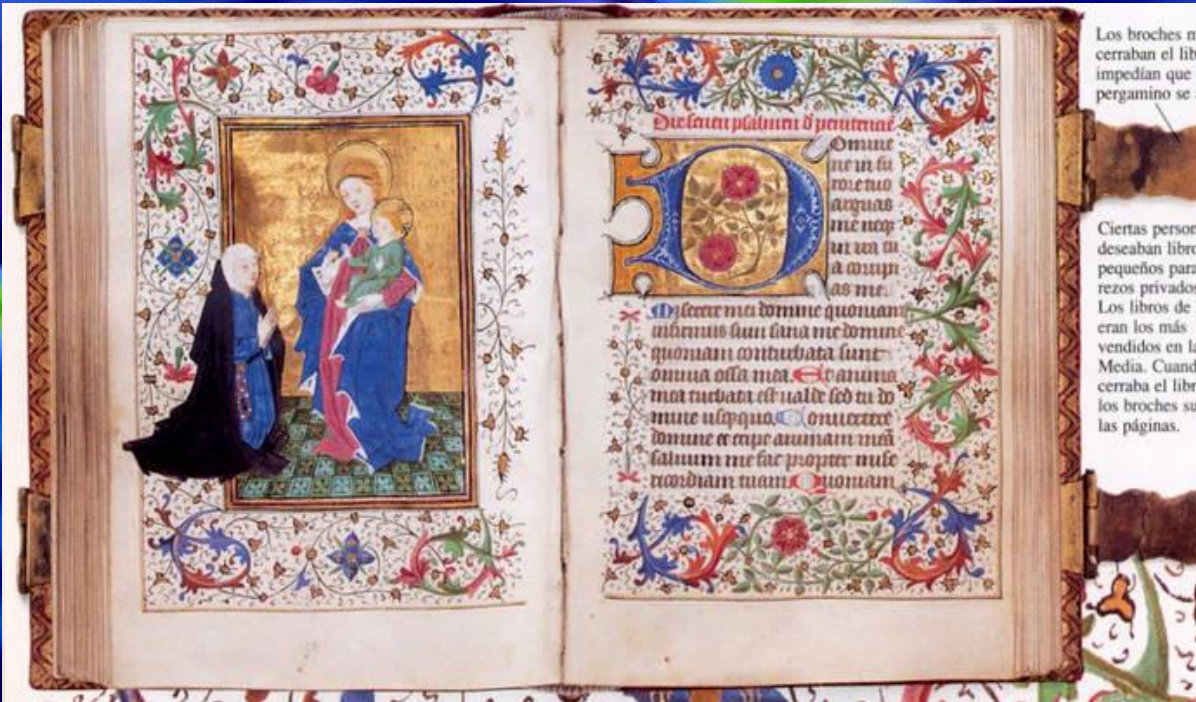 Die seven psalmen d penitencie
Omine
ne in fu
rore tuo
arguas
me neq
in ira tu
a corripi
as me.
Miserere mei domine quoniam
infirmus sum sana me domine
quoniam conturbata sunt
omnia ossa mea. Et anima
mea turbata est ualde sed tu do
mine usquequo. Conuertere
domine et eripe animam meā
saluum me fac propter mise
ricordiam tuam Quoniam
Los broches m
cerraban el lib
impedían que
pergamino se
Ciertas person
deseaban libro
pequeños para
rezos privados
Los libros de
eran los más
vendidos en la
Media. Cuand
cerraba el libr
los broches su
las páginas.